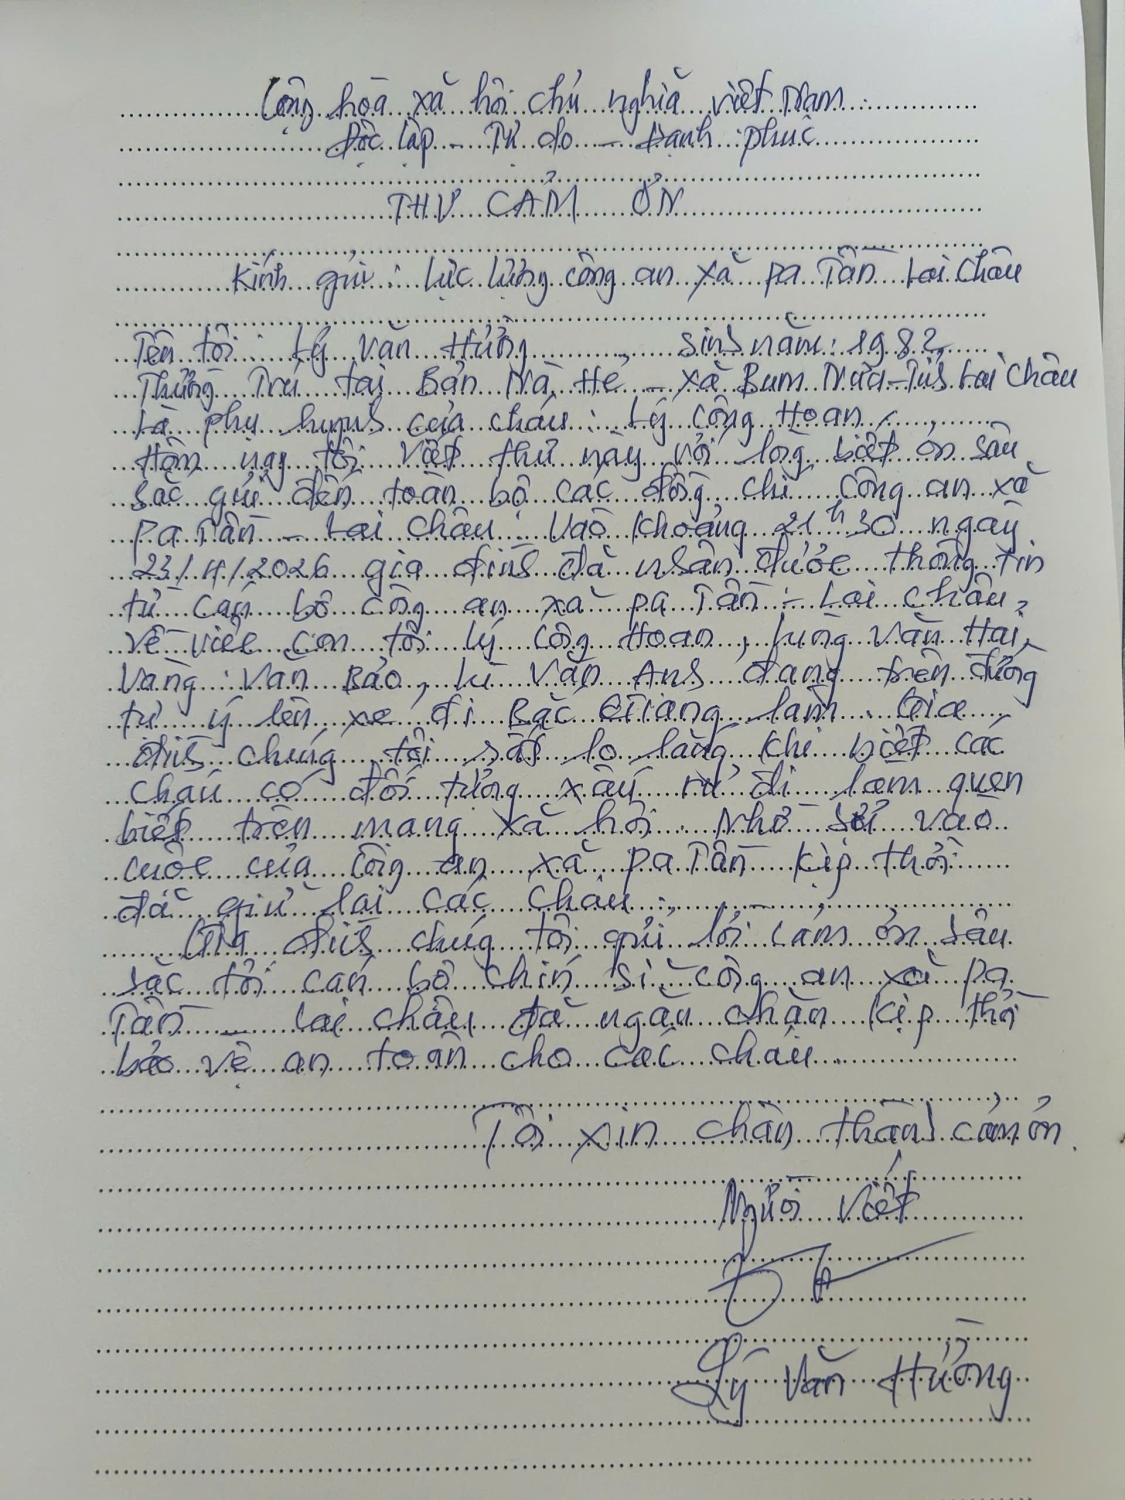 Cộng hòa xã hội chủ nghĩa việt Nam
Độc lập - Tự do - Hạnh phúc
THƯ CẢM ƠN
Kính gửi : Lực lượng công an xã pa Tần Lai Châu
Tên tôi : Lý Văn Hưởng sinh năm : 1982
Thường Trú tại Bản Nà Hẻ - xã Bum Nưa - Tỉnh Lai Châu
Là phụ huynh của cháu : Lý Công Hoan
Hôm nay tôi viết thư này với lòng biết ơn sâu
sắc gửi đến toàn bộ các đồng chí công an xã
pa Tần - Lai Châu . Vào khoảng 21h30 ngày
23/4/2026 gia đình đã nhận được thông tin
từ cán bộ công an xã pa Tần - Lai Châu,
về việc con tôi Lý Công Hoan, Lùng Văn Hai,
Vàng Văn Bảo, Lì Văn Anh đang trên đường
tự ý lên xe đi Bắc Giang làm. Gia
đình chúng tôi rất lo lắng khi biết các
cháu có đối tượng xấu rủ đi làm quen
biết trên mạng xã hội. Nhờ sự vào
cuộc của Công an xã pa Tần kịp thời
đã giữ lại các cháu.
Gia đình chúng tôi gửi lời cảm ơn sâu
sắc tới cán bộ chiến sĩ công an xã pa
Tần - Lai Châu, đã ngăn chặn kịp thời
bảo vệ an toàn cho các cháu.
Tôi xin chân thành cảm ơn
Người viết
Lý Văn Hưởng